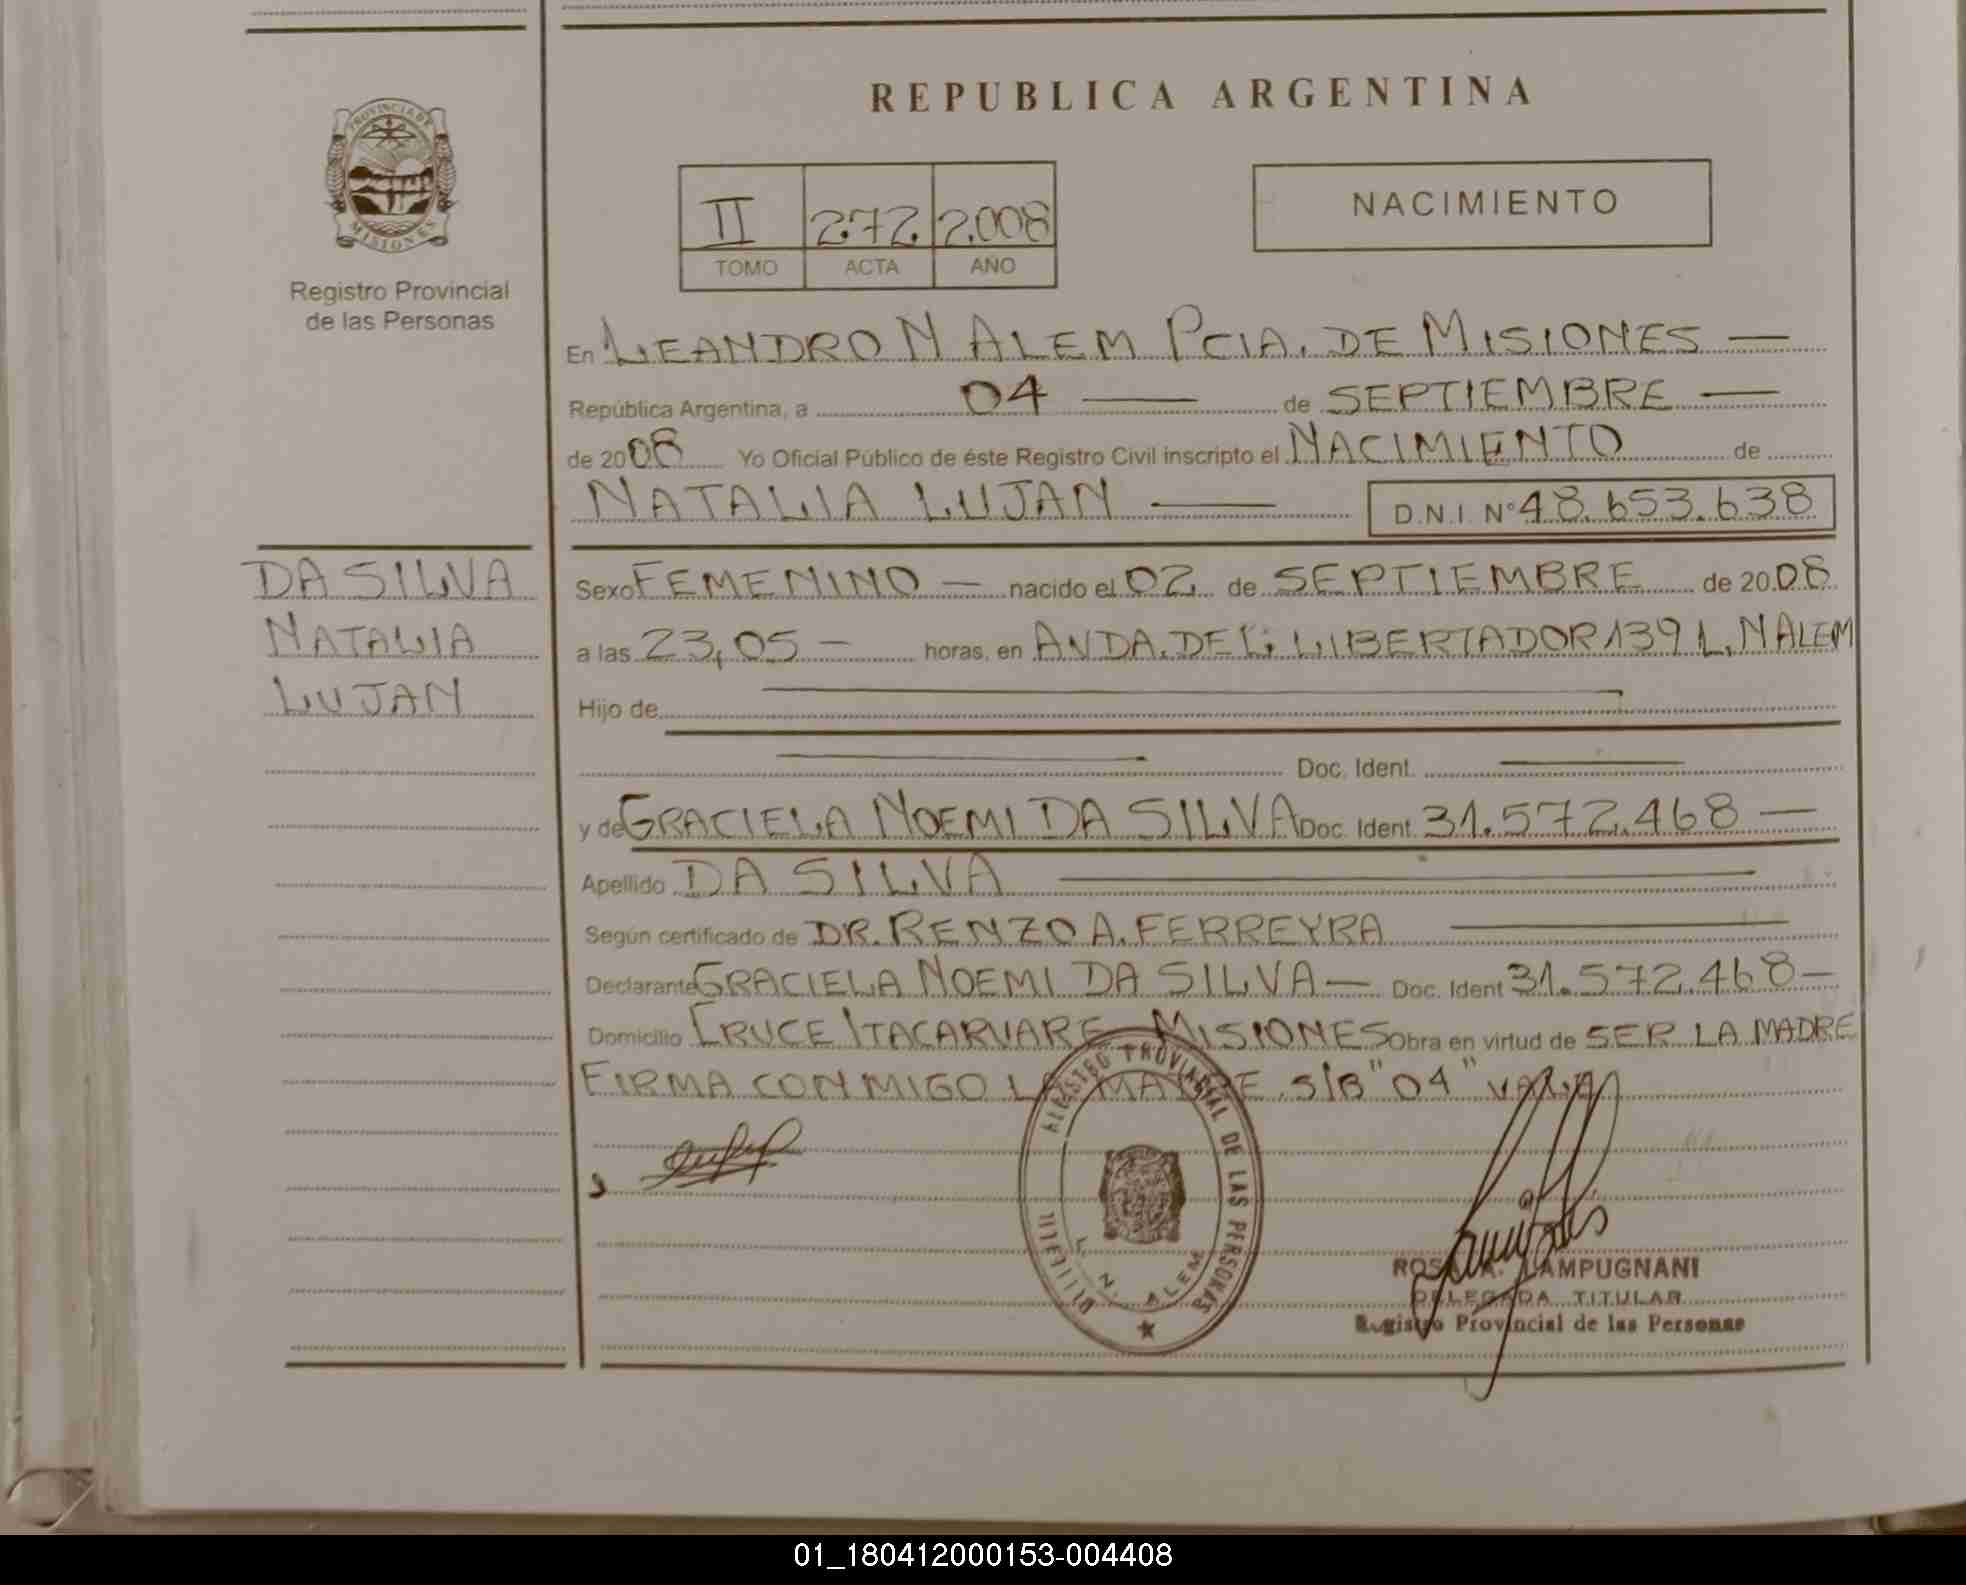 REPUBLICA ARGENTINA
PROVINCIA DE
MISIONES
Registro Provincial
de las Personas
II 272 2.008
TOMO ACTA AÑO
NACIMIENTO
En LEANDRO N ALEM PCIA. DE MISIONES —
República Argentina, a 04 — de SEPTIEMBRE —
de 2008 Yo Oficial Público de éste Registro Civil inscripto el NACIMIENTO de
NATALIA LUJAN — D.N.I. N° 48.653.638
DA SILVA
NATALIA
LUJAN
Sexo FEMENINO — nacido el 02 de SEPTIEMBRE de 2008
a las 23,05 — horas, en AVDA. DEL LIBERTADOR 139 L. N ALEM
Hijo de
Doc. Ident.
y de GRACIELA NOEMI DA SILVA Doc. Ident. 31.572.468 —
Apellido DA SILVA
Según certificado de DR. RENZO A. FERREYRA
Declarante GRACIELA NOEMI DA SILVA — Doc. Ident 31.572.468 —
Domicilio CRUCE ITACARUARE MISIONES Obra en virtud de SER LA MADRE
FIRMA CONMIGO LA MADRE. S/B "04" VALE
REGISTRO PROVINCIAL DE LAS PERSONAS
L. N. ALEM
ROSA A. LAMPUGNANI
DELEGADA TITULAR
Registro Provincial de las Personas
01_180412000153-004408